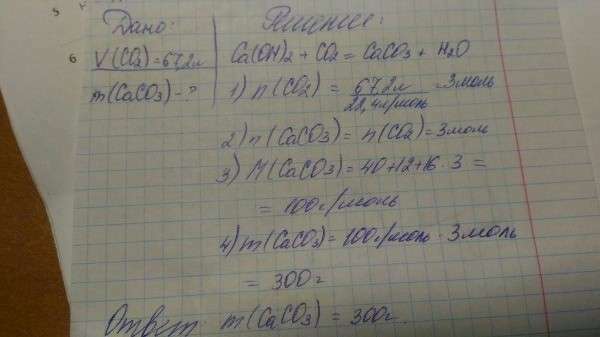 5
6
Дано:
V(CO2)=67,2л
m(CaCO3)-?
Решение:
Ca(OH)2 + CO2 = CaCO3 + H2O
1) n(CO2) = 67,2л / 22,4л/моль = 3моль
2) n(CaCO3) = n(CO2) = 3моль
3) M(CaCO3) = 40+12+16·3 =
= 100г/моль
4) m(CaCO3) = 100г/моль · 3моль
= 300г
Ответ: m(CaCO3) = 300г.